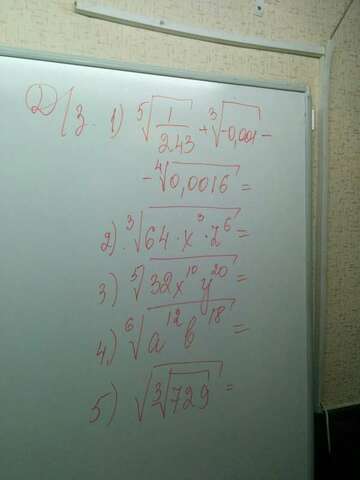 Д/З. 1) ⁵√(1/243) + ³√(-0,001) -
- ⁴√(0,0016) =
2) ³√(64·x³·z⁶) =
3) ⁵√(32x¹⁰y²⁰) =
4) ⁶√(a¹²b¹⁸) =
5) √(³√(729)) =